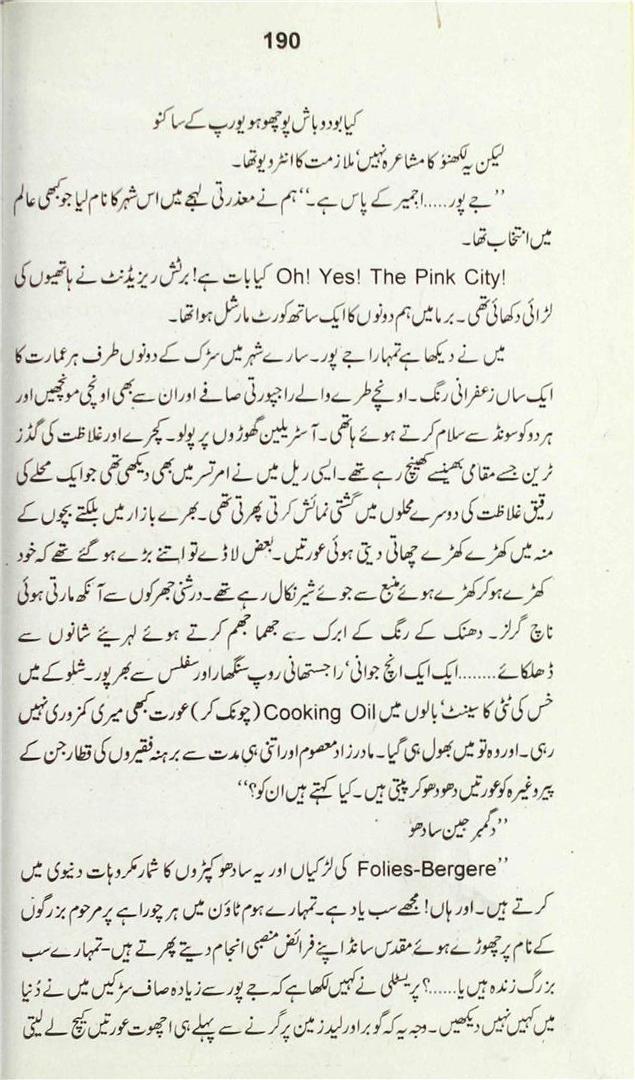 190
کیا بود و باش پوچھو ہو یورپ کے ساکنو
لیکن یہ لکھنؤ کا مشاعرہ نہیں، ملازمت کا انٹرویو تھا۔
”جے پور.....اجمیر کے پاس ہے۔“ ہم نے معذرتی لہجے میں اس شہر کا نام لیا جو کبھی عالم
میں انتخاب تھا۔
Oh! Yes! The Pink City! کیا بات ہے! برٹش ریزیڈنٹ نے ہاتھیوں کی
لڑائی دکھائی تھی۔ برما میں ہم دونوں کا ایک ساتھ کورٹ مارشل ہوا تھا۔
میں نے دیکھا ہے تمہارا جے پور۔ سارے شہر میں سڑک کے دونوں طرف ہر عمارت کا
ایک ساں زعفرانی رنگ۔ اونچے طرے والے راجپوتی صافے اور ان سے بھی اونچی مونچھیں اور
ہر دو کو سونڈ سے سلام کرتے ہوئے ہاتھی۔ آسٹریلین گھوڑوں پر پولو۔ کچرے اور غلاظت کی گڈز
ٹرین جسے مقامی بھینسے کھینچ رہے تھے۔ ایسی ریل میں نے امرتسر میں بھی دیکھی تھی جو ایک محلے کی
رقیق غلاظت کی دوسرے محلوں میں گشتی نمائش کرتی پھرتی تھی۔ بھرے بازار میں بلکتے بچوں کے
منہ میں کھڑے کھڑے چھاتی دیتی ہوئی عورتیں۔ بعض لاڈے تو اتنے بڑے ہو گئے تھے کہ خود
کھڑے ہو کر کھڑے ہوئے منبع سے جوئے شیر نکال رہے تھے۔ درشنی جھرکوں سے آنکھ مارتی ہوئی
ناچ گرلز۔ دھنک کے رنگ کے ابرک سے جھما جھم کرتے ہوئے لہریئے شانوں سے
ڈھلکائے........ایک ایک انچ جوانی، راجستھانی روپ سنگھار اور سفلس سے بھرپور۔ شلوکے میں
خس کی ٹٹی کا سینٹ، بالوں میں Cooking Oil (چونک کر) عورت کبھی میری کمزوری نہیں
رہی۔ اور وہ تو میں بھول ہی گیا۔ مادرزاد معصوم اور اتنی ہی مدت سے برہنہ فقیروں کی قطار جن کے
پیر وغیرہ کو عورتیں دھو دھو کر پیتی ہیں۔ کیا کہتے ہیں ان کو؟“
”دگمبر جین سادھو
”Folies-Bergere کی لڑکیاں اور یہ سادھو کپڑوں کا شمار مکروہات دنیوی میں
کرتے ہیں۔ اور ہاں! مجھے سب یاد ہے۔ تمہارے ہوم ٹاؤن میں ہر چوراہے پر مرحوم بزرگوں
کے نام پر چھوڑے ہوئے مقدس سانڈ اپنے فرائض منصبی انجام دیتے پھرتے ہیں- تمہارے سب
بزرگ زندہ ہیں یا......؟ پریسٹلی نے کہیں لکھا ہے کہ جے پور سے زیادہ صاف سڑکیں میں نے دُنیا
میں کہیں نہیں دیکھیں۔ وجہ یہ کہ گوبر اور لید زمین پر گرنے سے پہلے ہی اچھوت عورتیں کیچ لے لیتی